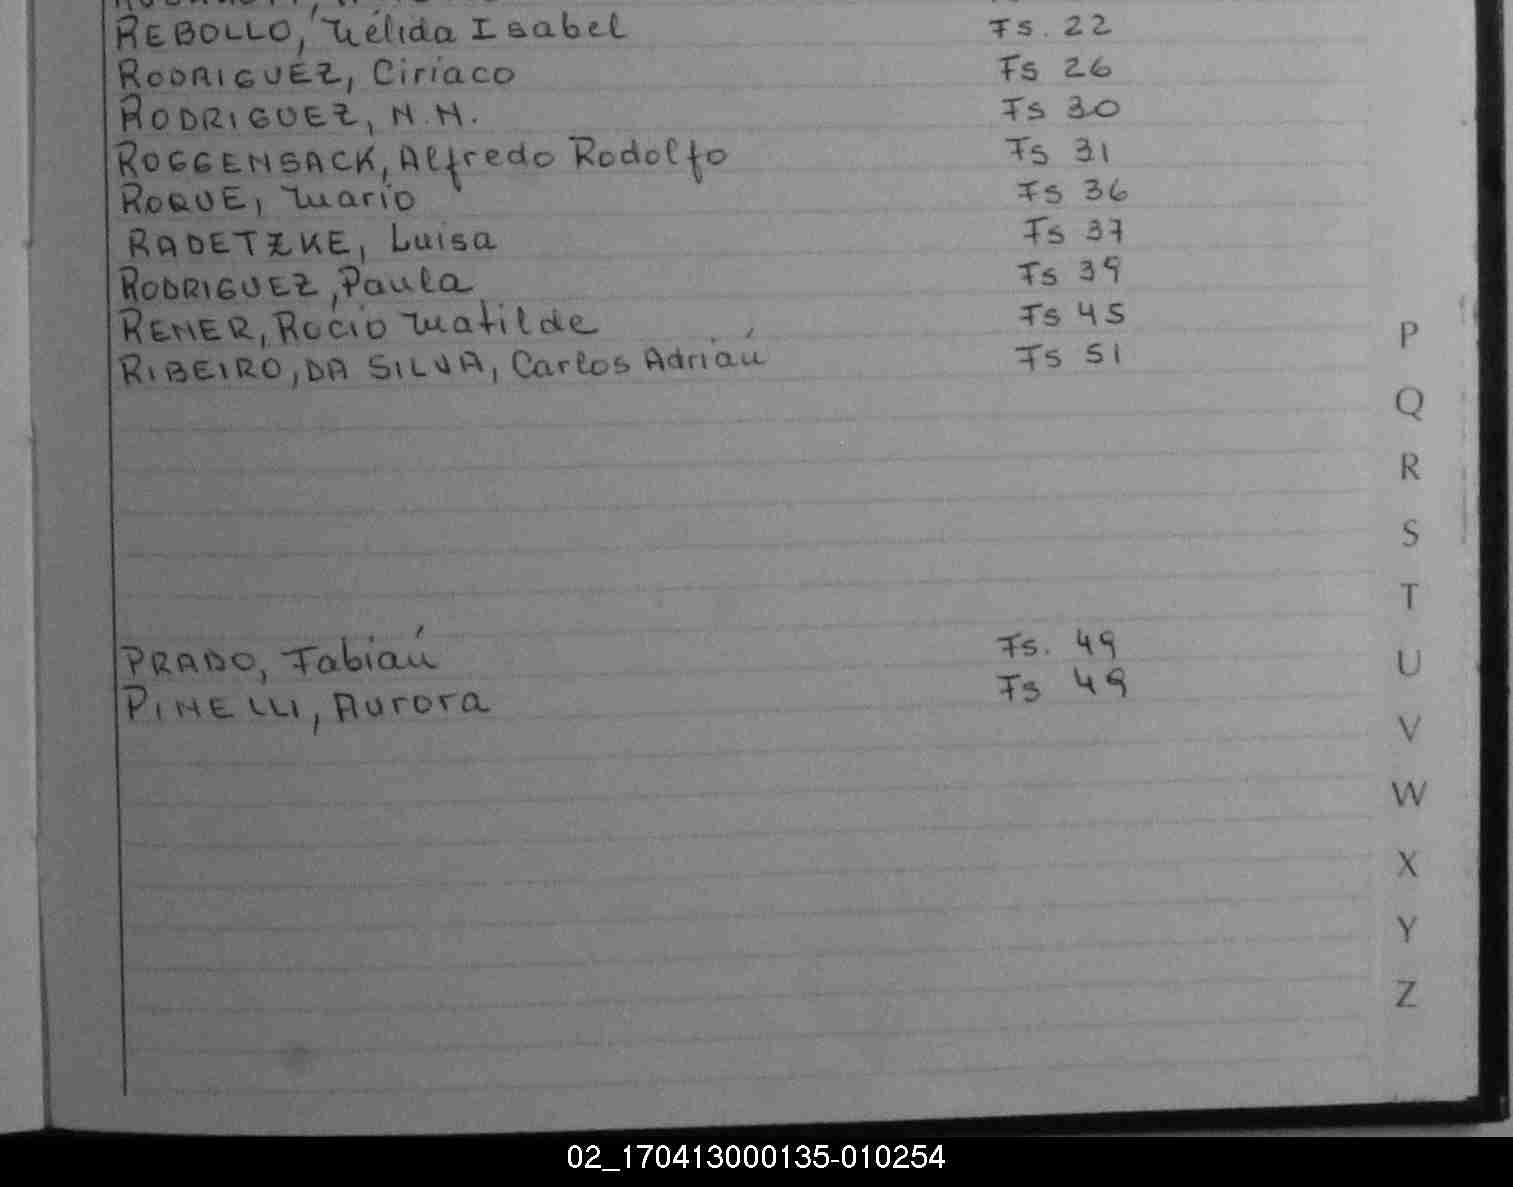 REBOLLO, Nélida Isabel Fs. 22
RODRIGUEZ, Ciriaco Fs 26
RODRIGUEZ, N.N. Fs 30
ROGGENSACK, Alfredo Rodolfo Fs 31
ROQUE, Mario Fs 36
RADETZKE, Luisa Fs 37
RODRIGUEZ, Paula Fs 39
RENER, Rocio Matilde Fs 45
RIBEIRO, DA SILVA, Carlos Adrián Fs 51
PRADO, Fabián Fs. 49
PINELLI, Aurora Fs 49
P
Q
R
S
T
U
V
W
X
Y
Z
02_170413000135-010254